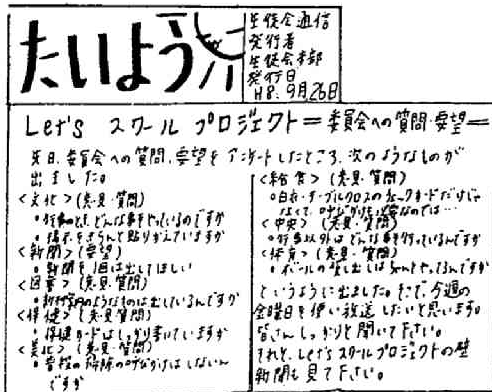 たいよう
生徒会通信
発行者
生徒会本部
発行日
H8.9月26日
Let's スクール プロジェクト=委員会への質問・要望=
先日、委員会への質問、要望をアンケートしたところ、次のようなものが
出ました。
<文化>(意見・質問)
行事のとき、どんな事をやっているのですか
掲示をきちんと貼りかえていますか
<新聞>(要望)
新聞を1回は出してほしい
<図書>(意見・質問)
新刊案内のようなものは出しているんですか
<保健>(意見・質問)
保健カードはしっかり書いていますか
<美化>(意見・質問)
普段の掃除の呼びかけはしないん
ですか
<給食>(意見・質問)
白衣・テーブルクロスのチェックカードだけじゃ
なくて、呼びかけも必要なのでは…
<中央>(意見・質問)
行事以外はどんな事を行っているんですか
<体育>(意見・質問)
ボールの貸し出しはちゃんとやってるんですか
というように出ました。そこで、今週の
金曜日を使い放送したいと思います。
皆さんしっかりと聞いて下さい。
それと、Let's スクールプロジェクトの壁
新聞も見て下さい。